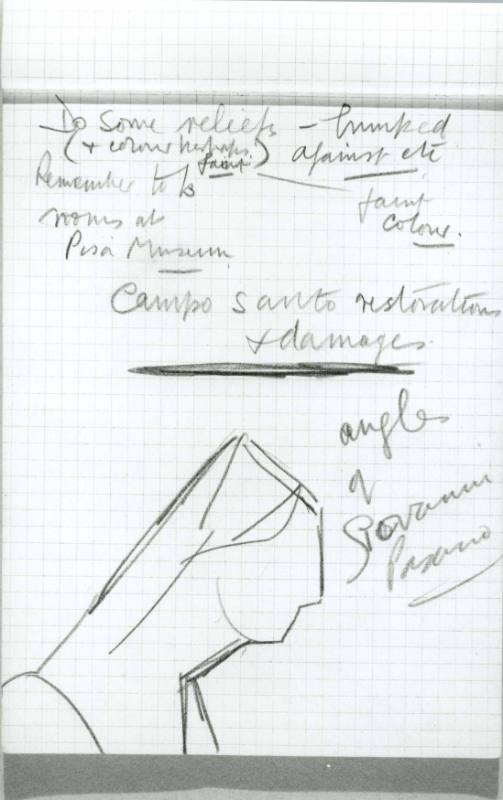 Do some reliefs – bumped
(+ colour perhaps faint) against etc
Remember to
rooms at
faint
colour.
Pisa Museum
Campo Santo restorations
+ damages.
angles
of
Giovanni
Pisano